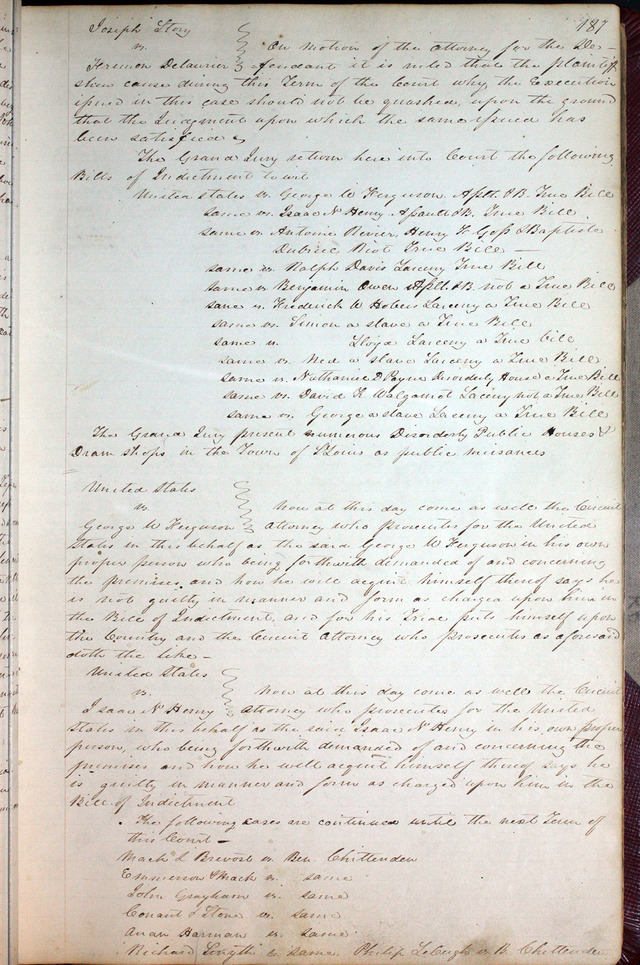 187
Joseph Story
vs. On motion of the attorney for the De-
Fermon Delaurier fendant it is ruled that the plaintiff
shew cause during this Term of the Court why the Execution
issued in this case should not be quashed, upon the ground
that the Judgment upon which the same issued has
been satisfied
The Grand Jury return here into Court the following
Bills of Indictment to wit
United States vs. George W Ferguson. Asslt. & B. True Bill
same vs. Isaac N Henry. Assault & B. True Bill
same vs. Antoine Revier, Henry K. Goss & Baptiste
Dubriel Riot True Bill —
same vs. Ralph Davis Larceny True Bill
same vs. Benjamin Owen Asslt & B not a True Bill
same vs. Frederick W Larceny a True Bill
same vs. Simon a slave a True Bill
same vs. Lloyd Larceny a True bill
same vs. Ned a slave Larceny a True Bill
same vs. Nathaniel D Payne Disorderly House a True Bill
same vs. David K. Walgamot Larceny not a True Bill
same vs. George a slave Larceny a True Bill
The Grand Jury present numerous Disorderly Public Houses &
Dram shops in the Town of St Louis as public nuisances
United States
vs. Now at this day come as well the Circuit
George W Ferguson attorney who prosecutes for the United
States in this behalf as the said George W Ferguson in his own
proper person who being forthwith demanded of and concerning
the premises, and how he will acquit himself thereof says he
is not guilty in manner and form as charged upon him in
the Bill of Indictment, and for his Trial puts himself upon
the Country and the Circuit Attorney who prosecutes as aforesaid
doth the like —
United States
vs. Now at this day come as well the Circuit
Isaac N Henry attorney who prosecutes for the United
States in this behalf as the said Isaac N Henry in his own proper
person, who being forthwith demanded of and concerning the
premises and how he will acquit himself thereof says he
is guilty in manner and form as charged upon him in the
Bill of Indictment
The following cases are continued until the next Term of
this Court —
Mack & Brevort vs. Ben. Chittenden
Emmerson & Mack vs. same
John Grayham vs. same
Conant & Stone vs. same
Harman vs. same
Richard Smyth vs. same. Philip vs B. Chittenden